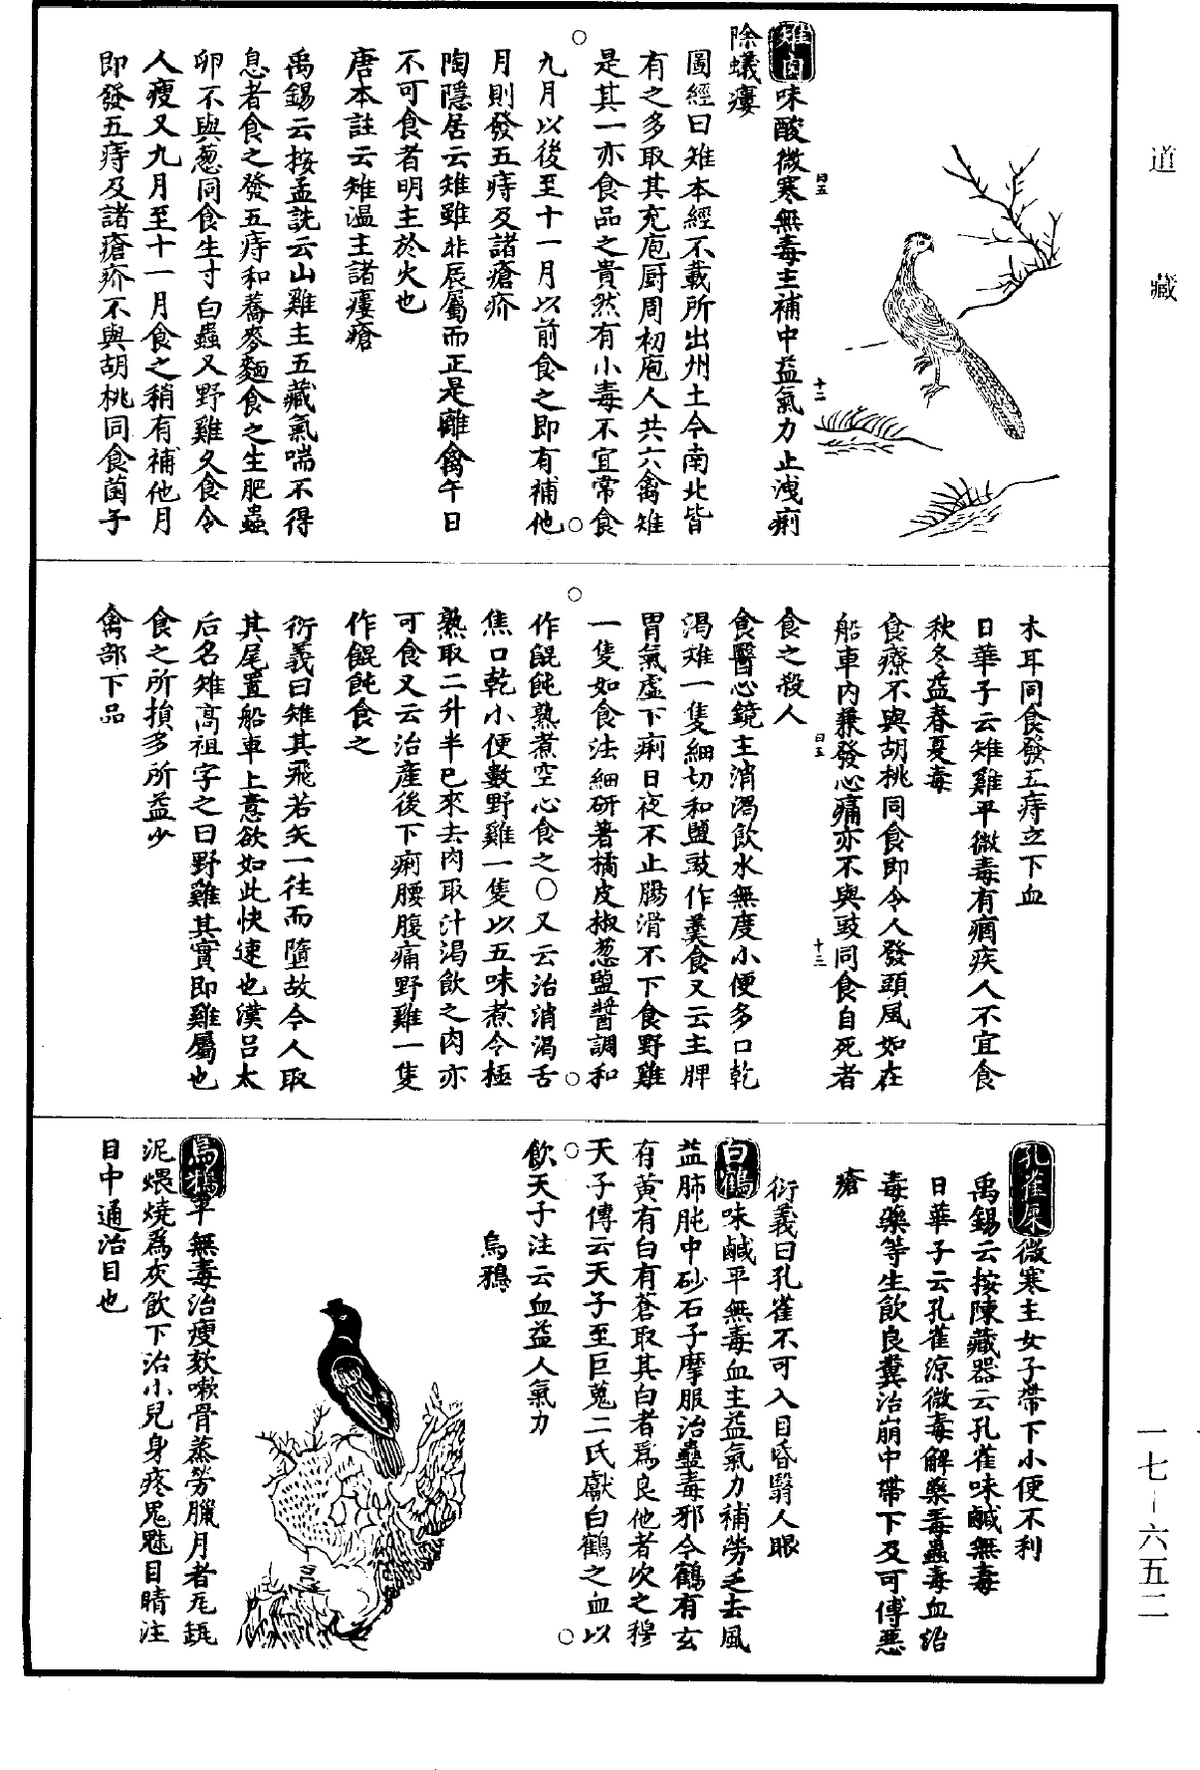 道藏
雉肉味酸微寒無毒主補中益氣力止洩痢
除蟻瘻
圖經曰雉本經不載所出州土今南北皆
有之多取其充庖厨周礿庖人共六禽雉
是其一亦食品之貴然有小毒不宜常食
九月以後至十一月以前食之即有補他
月則發五痔及諸瘡疥
陶隱居云雉雖非辰屬而正是離禽午日
不可食者明主於火也
唐本註云雉温主諸瘻瘡
禹錫云按孟詵云山雞主五藏氣喘不得
息者食之發五痔和蕎麥麵食之生肥蟲
卵不與葱同食生寸白蟲又野雞久食令
人瘦又九月至十一月食之稍有補他月
即發五痔及諸瘡疥不與胡桃同食菌子
木耳同食發五痔立下血
日華子云雉雞平微毒有痼疾人不宜食
秋冬益春夏毒
食療不與胡桃同食即令人發頭風如在
船車内兼發心痛亦不與豉同食自死者
食之殺人
食醫心鏡主消渴飲水無度小便多口乾
渴雉一隻細切和鹽豉作羹食又云主脾
胃氣虛下痢日夜不止腸滑不下食野雞
一隻如食法細研著橘皮椒葱鹽醬調和
作餛飩熟煮空心食之〇又云治消渴舌
焦口乾小便數野雞一隻以五味煮令極
熟取二升半已來去肉取汁渴飲之肉亦
可食又云治產後下痢腰腹痛野雞一隻
作餛飩食之
衍義曰雉其飛若矢一往而墮故今人取
其尾置船車上意欲如此快速也漢吕太
后名雉高祖字之曰野雞其實即雞屬也
食之所損多所益少
禽部下品
孔雀屎微寒主女子帶下小便不利
禹錫云按陳藏器云孔雀味鹹無毒
日華子云孔雀涼微毒解藥毒蟲毒血治
毒藥等生飲良糞治崩中帶下及可傅惡
瘡
衍義曰孔雀不可入目昏翳人眼
白鶴味鹹平無毒血主益氣力補勞乏去風
益肺肫中砂石子摩服治蠱毒邪今鶴有玄
有黄有白有蒼取其白者爲良他者次之穆
天子傳云天子至巨蒐二氏獻白鶴之血以
飲天子注云血益人氣力
烏鴉
烏鴉平無毒治瘦欬嗽骨蒸勞臘月者瓦缻
泥煨燒爲灰飲下治小兒身疼鬼魅目睛注
目中通治目也
一七-六五二